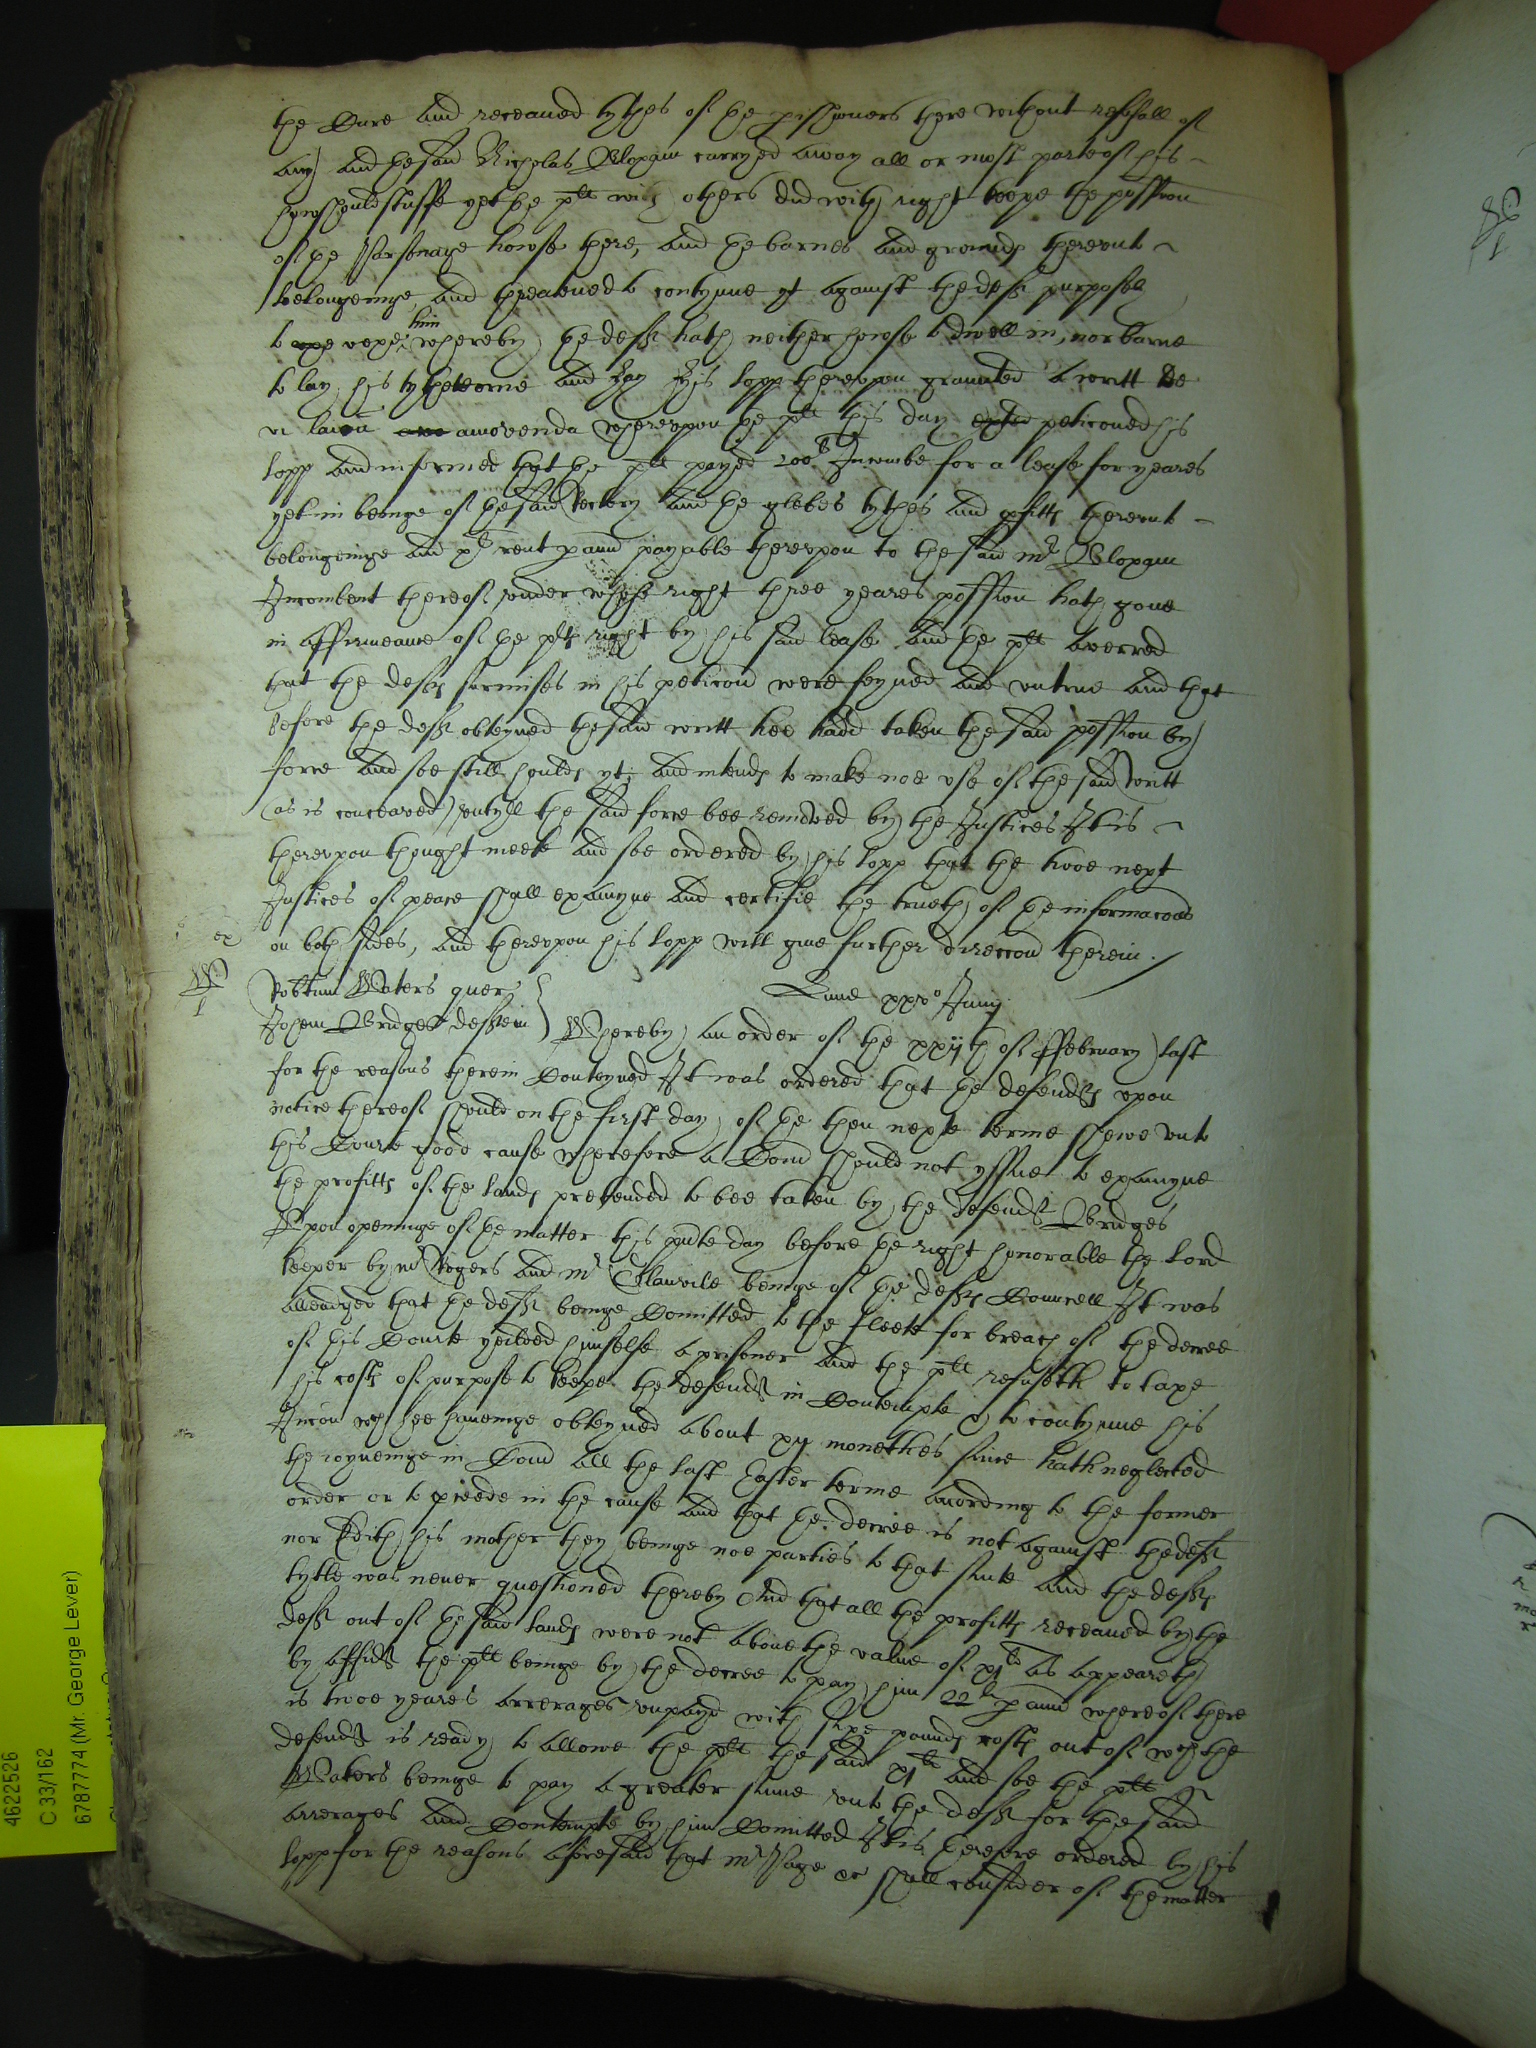 the Cure and receaved tythes of the pishioners there without refusall of
any And the said Nicholas Bloxam carryed away all or most parte of his
howshouldstuffe yet the plt with others did with right keepe the possion
of the Parsonage howse there, and the barnes and grounds therevnto
belongeinge and threatened to contynue yt against the deft purposely
to vexe him whereby the deft hath neither howse to dwell in, nor barne
to lay his tythecorne and hay His lopp therevpon graunted a writt de
vi laica amovenda wherevpon the plt this day peticoned his
lopp and informed that the plt payed 200li Incombe for a lease for yeares
yet in beinge of the said Rectory and the glebes tythes and pfitts therevnto
belongeinge and rent p ann payable therevpon to the said mr Bloxam
Incombent thereof vnder whose right three yeares possion hath gone
in affirmance of the plts right by his said lease And the plt averred
that the defts surmises in his peticon were feyned and vntrue And that
before the deft obteyned the said writt hee hadd taken the said possion by
force and soe still houlds yt, and intends to make noe vse of the said writt
(as is conceaved) vntyll the said force bee removed by the Justices It is
therevpon thought meete and soe ordered by his lopp that the twoe next
Justices of peace shall examyne and certifie the trueth of the informacons
on both sides, and therevpon his lopp will give further direccon therein.
Robtum Waters quer
Lune xxvo Junij
Johem Bridges deften Whereby an order of the xxijth of ffebruary last
for the reasons therein Conteyned It was ordered that the defendts vpon
notice thereof should on the first day of the then nexte terme shewe vnto
this Courte good cause wherefore a Comn should not yssue to examyne
the profitts of the lands pretended to bee taken by the defendt Bridges
Vpon openinge of the matter this pnte day before the right honorable the Lord
keeper by mr Rogers and mr Glanvile beinge of the defts Councell It was
alleadged that the deft beinge Comitted to the fleete for breach of the decree
of this Courte yeilded himselfe a prisoner and the plt refuseth to taxe
his costs of purpose to keepe the defendt in Contempte & to contynue his
Iniunc wch hee haveinge obteyned about xij monethes since hath neglected
the ioyneinge in Comn all the last Easter terme according to the former
order or to pceede in the cause And that the decree is not against the deft
nor Edith his mother they beinge noe parties to that suite And the defts
tytle was never questioned thereby And that all the profitts receaved by the
deft out of the said lands were not above the value of xjli as appeareth
by affidt the plt beinge by the decree to pay him 22li p ann whereof there
is twoe yeares arrerages vnpayd with sixe pounds costs out of wch the
defendt is ready to allowe the plt the said xjli and soe the plt
Waters beinge to pay a greater summe vnto the deft for the said
arrerages and Contempte by him Comitted It is therefore ordered by his
lopp for the reasons aforesaid that mr Page &c shall consider of the matter
4622526
C 33/162
6787774 (Mr. George Lever)